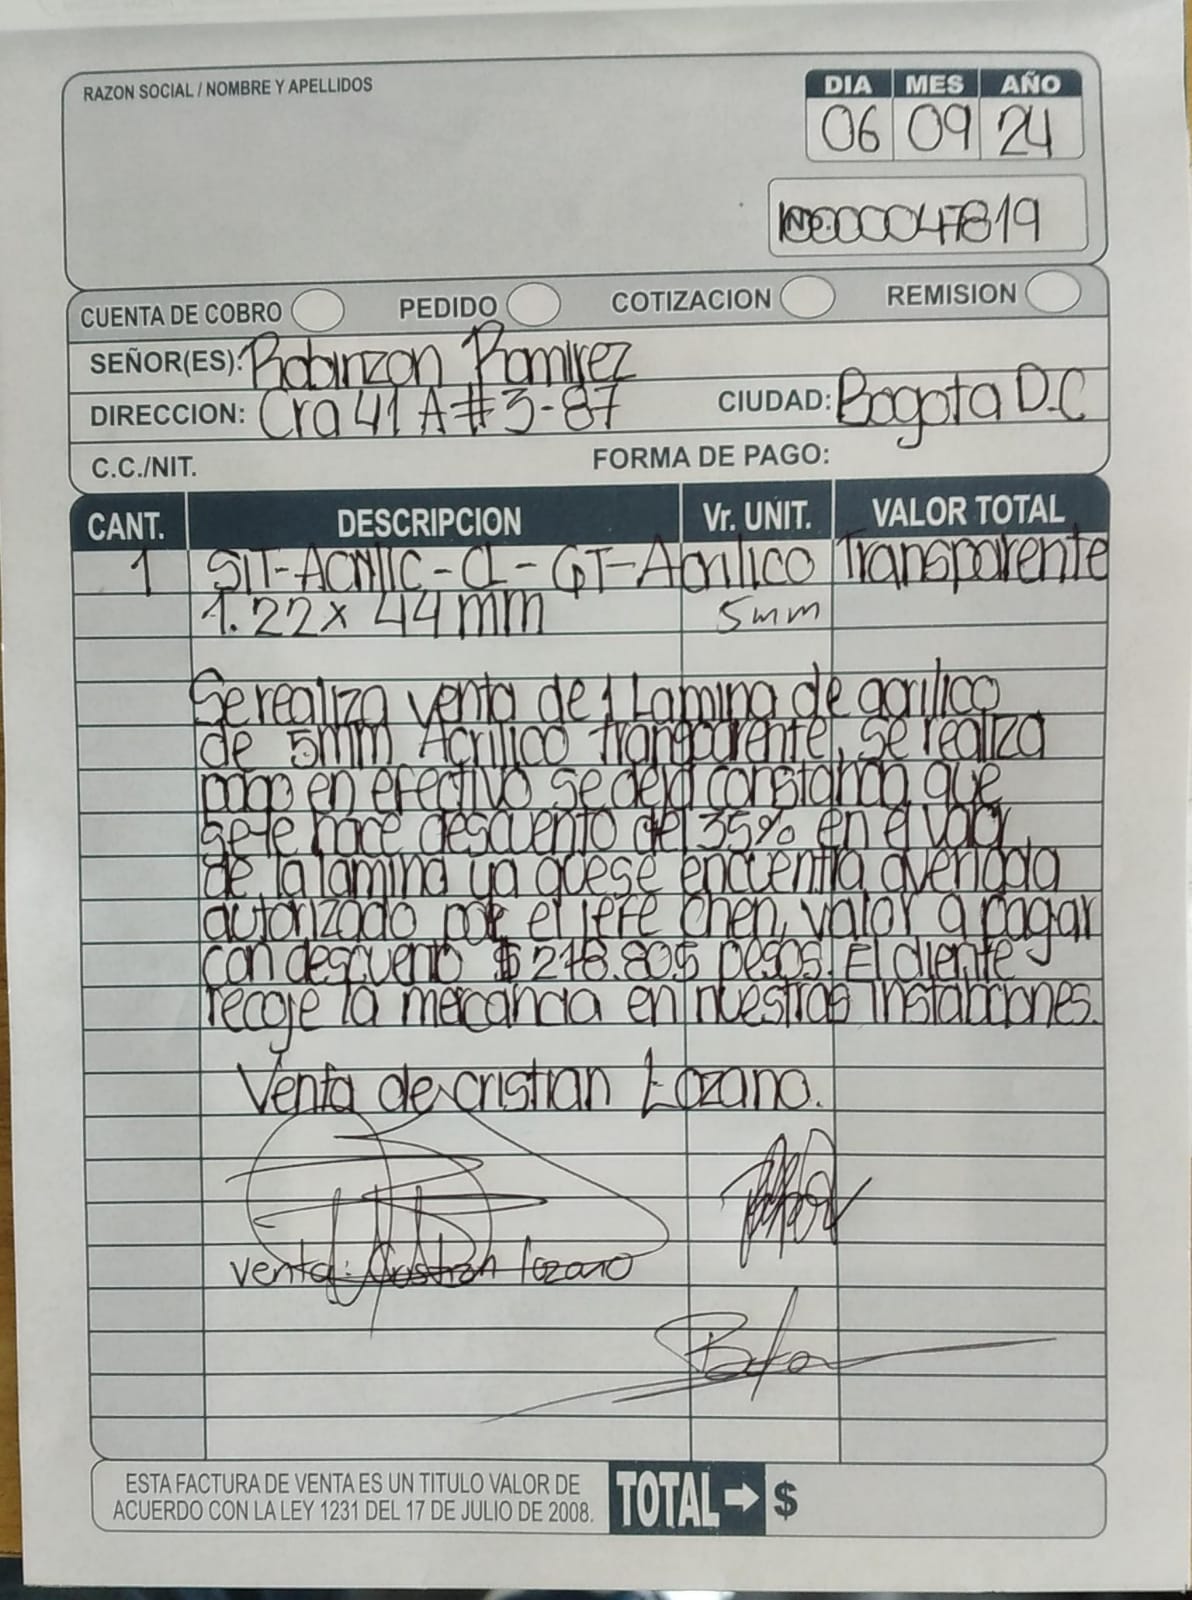 RAZON SOCIAL / NOMBRE Y APELLIDOS
DIA MES AÑO
06 09 24
No. 00000047819
CUENTA DE COBRO PEDIDO COTIZACION REMISION
SEÑOR(ES): Robinzon Ramirez
DIRECCION: Cra 41 A # 3-87 CIUDAD: Bogota D.C
C.C./NIT. FORMA DE PAGO:
CANT. DESCRIPCION Vr. UNIT. VALOR TOTAL
1 SIT-ACRILIC-CL-GT-Acrilico Transparente
1.22 x 44 mm 5mm
Se realiza venta de 1 Lamina de acrilico
de 5mm Acrilico Transparente, se realiza
pago en efectivo se deja constancia que
se le hace descuento del 35% en el valor
de la lamina ya que se encuentra averiada
autorizado por el jefe Chen, valor a pagar
con descuento $ 218.805 pesos. El cliente
recoje la mercancia en nuestras instalaciones.
Venta de cristian Lozano.
Venta: Cristian Lozano
ESTA FACTURA DE VENTA ES UN TITULO VALOR DE
ACUERDO CON LA LEY 1231 DEL 17 DE JULIO DE 2008.
TOTAL $